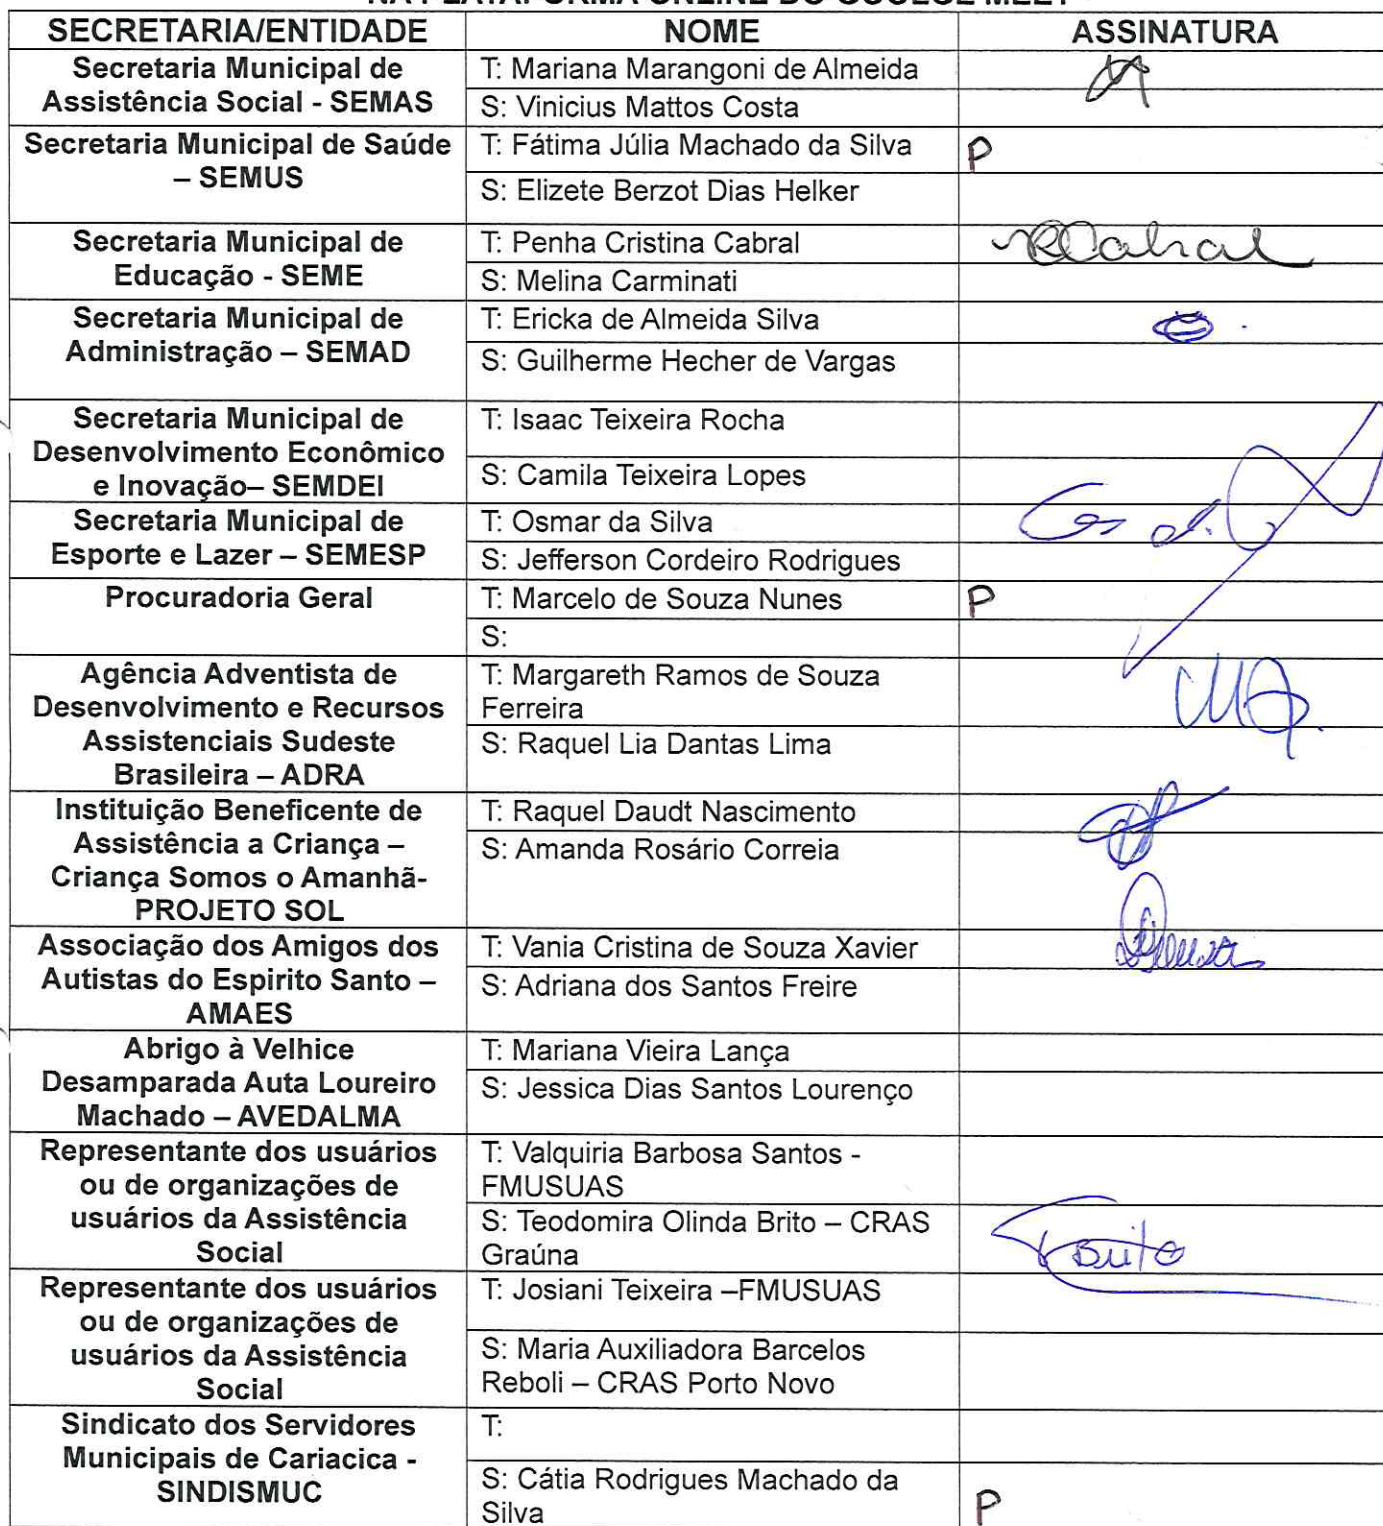 SECRETARIA/ENTIDADE NOME ASSINATURA
Secretaria Municipal de
Assistência Social - SEMAS
T: Mariana Marangoni de Almeida
S: Vinicius Mattos Costa
Secretaria Municipal de Saúde
– SEMUS
T: Fátima Júlia Machado da Silva
P
S: Elizete Berzot Dias Helker
Secretaria Municipal de
Educação - SEME
T: Penha Cristina Cabral
S: Melina Carminati
Secretaria Municipal de
Administração – SEMAD
T: Ericka de Almeida Silva
S: Guilherme Hecher de Vargas
Secretaria Municipal de
Desenvolvimento Econômico
e Inovação– SEMDEI
T: Isaac Teixeira Rocha
S: Camila Teixeira Lopes
Secretaria Municipal de
Esporte e Lazer – SEMESP
T: Osmar da Silva
S: Jefferson Cordeiro Rodrigues
Procuradoria Geral
T: Marcelo de Souza Nunes
P
S:
Agência Adventista de
Desenvolvimento e Recursos
Assistenciais Sudeste
Brasileira – ADRA
T: Margareth Ramos de Souza
Ferreira
S: Raquel Lia Dantas Lima
Instituição Beneficente de
Assistência a Criança –
Criança Somos o Amanhã-
PROJETO SOL
T: Raquel Daudt Nascimento
S: Amanda Rosário Correia
Associação dos Amigos dos
Autistas do Espirito Santo –
AMAES
T: Vania Cristina de Souza Xavier
S: Adriana dos Santos Freire
Abrigo à Velhice
Desamparada Auta Loureiro
Machado – AVEDALMA
T: Mariana Vieira Lança
S: Jessica Dias Santos Lourenço
Representante dos usuários
ou de organizações de
usuários da Assistência
Social
T: Valquiria Barbosa Santos -
FMUSUAS
S: Teodomira Olinda Brito – CRAS
Graúna
Brito
Representante dos usuários
ou de organizações de
usuários da Assistência
Social
T: Josiani Teixeira –FMUSUAS
S: Maria Auxiliadora Barcelos
Reboli – CRAS Porto Novo
Sindicato dos Servidores
Municipais de Cariacica -
SINDISMUC
T:
S: Cátia Rodrigues Machado da
Silva
P